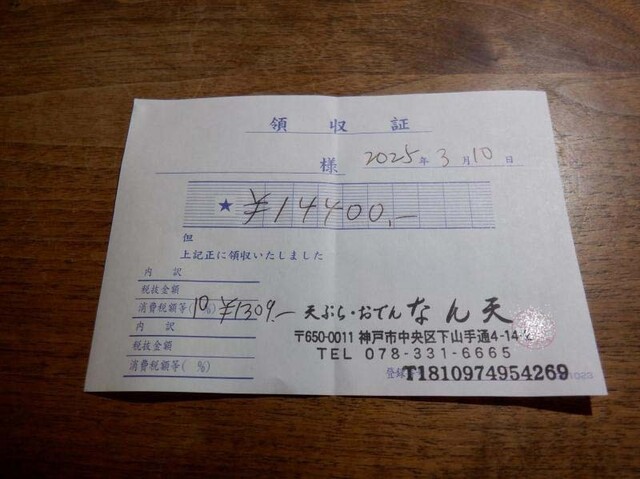 領収証
様 2025年3月10日
★ ¥14400.-
但
上記正に領収いたしました
内訳
税抜金額
消費税額等(10%) ¥1309.-
内訳
税抜金額
消費税額等( %)
天ぷら・おでん なん天
〒650-0011 神戸市中央区下山手通4-14-2
TEL 078-331-6665
登録 T1810974954269